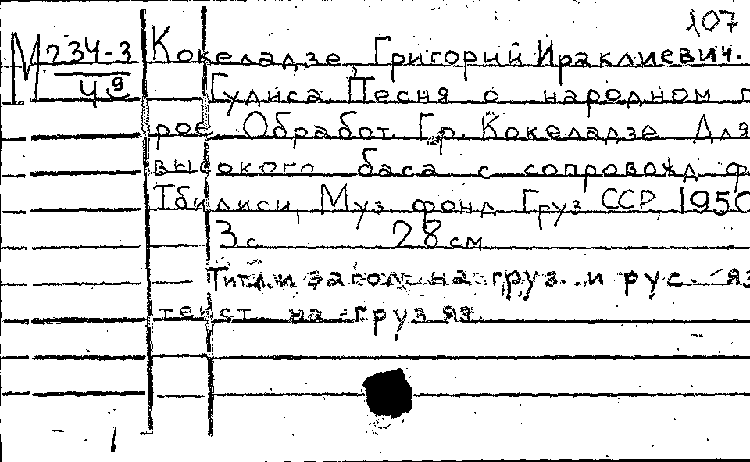 107
М 234-3 Кокеладзе, Григорий Ираклиевич.
49 Гудиса. Песня о народном г
рое. Обработ. Гр. Кокеладзе. Для
высокого баса с сопровожд. ф
Тбилиси, Муз. фонд Груз. ССР, 1950
3 с. 28 см
Титл. и загол. на груз. и рус. яз
текст на груз. яз.